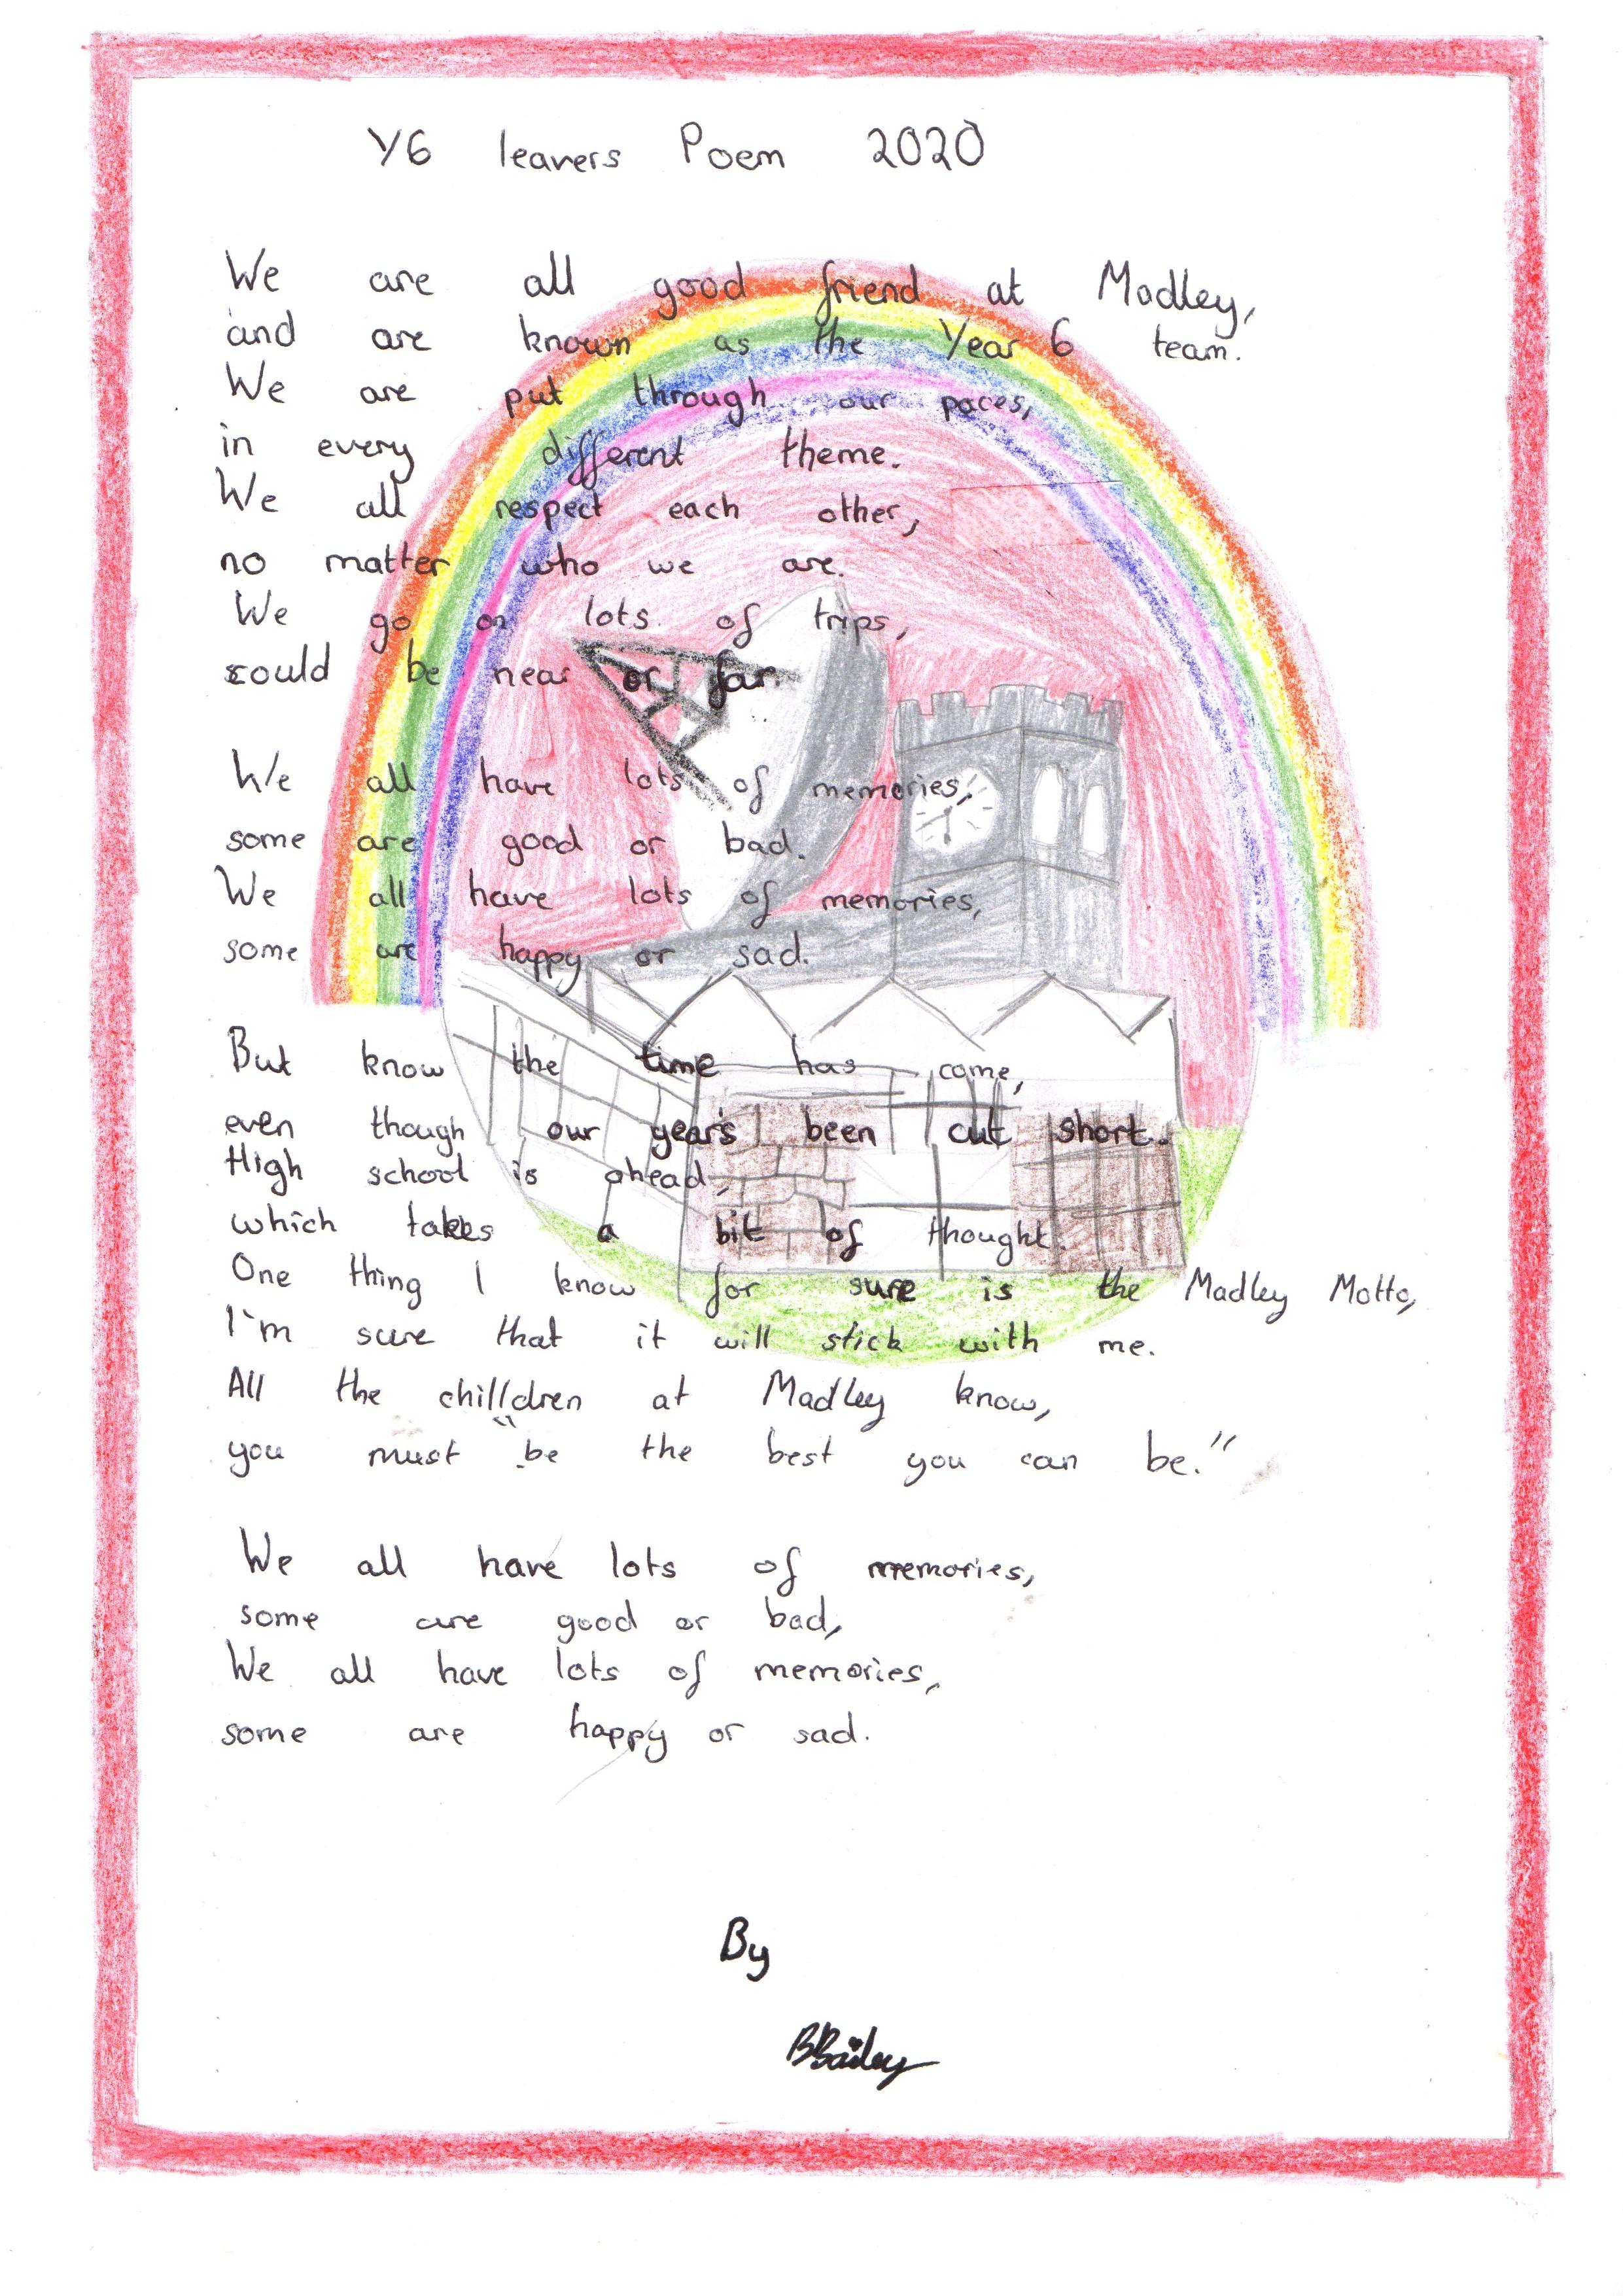 Y6 leavers Poem 2020
We are all good friend at Madley,
and are known as the Year 6 team.
We are put through our paces,
in every different theme.
We all respect each other,
no matter who we are.
We go on lots of trips,
could be near or far.
We all have lots of memories,
some are good or bad.
We all have lots of memories,
some are happy or sad.
But know the time has come,
even though our year's been cut short.
High school is ahead,
which takes a bit of thought.
One thing I know for sure is the Madley Motto,
I'm sure that it will stick with me.
All the chilldren at Madley know,
you must "be the best you can be."
We all have lots of memories,
some are good or bad,
We all have lots of memories,
some are happy or sad.
By
BBailey